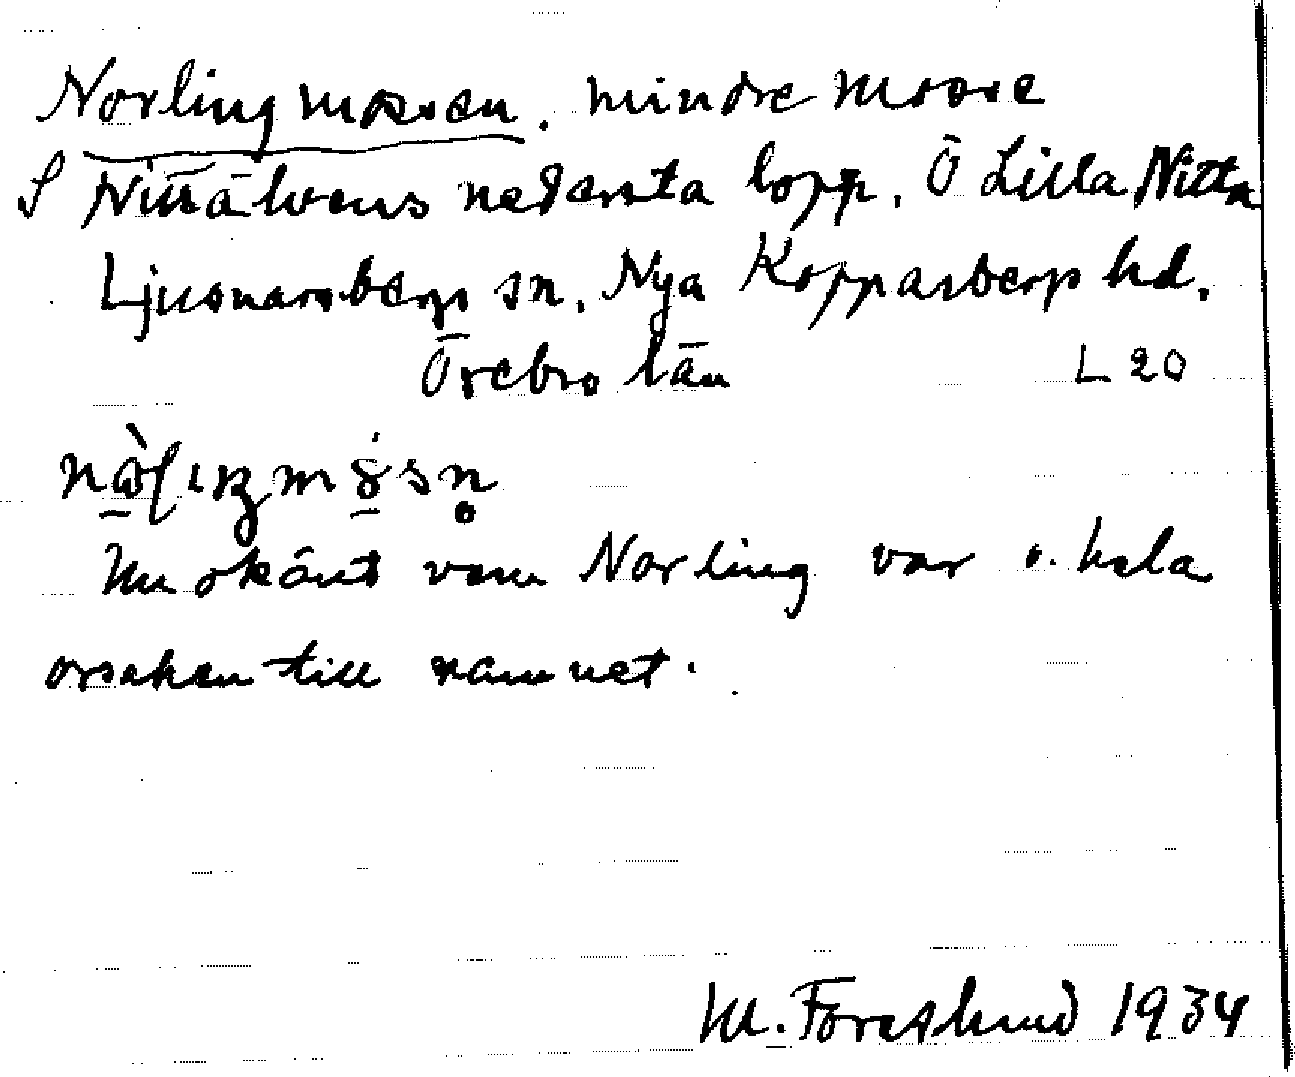 Norlingmossen. mindre mosse
S Nittälvens nedersta lopp. Ö Lilla Nitten
Ljusnarsbergs sn. Nya Kopparbergs hd.
Örebro län L 20
Nu okänt vem Norling var o. hela
orsaken till namnet.
M. Forslund 1934